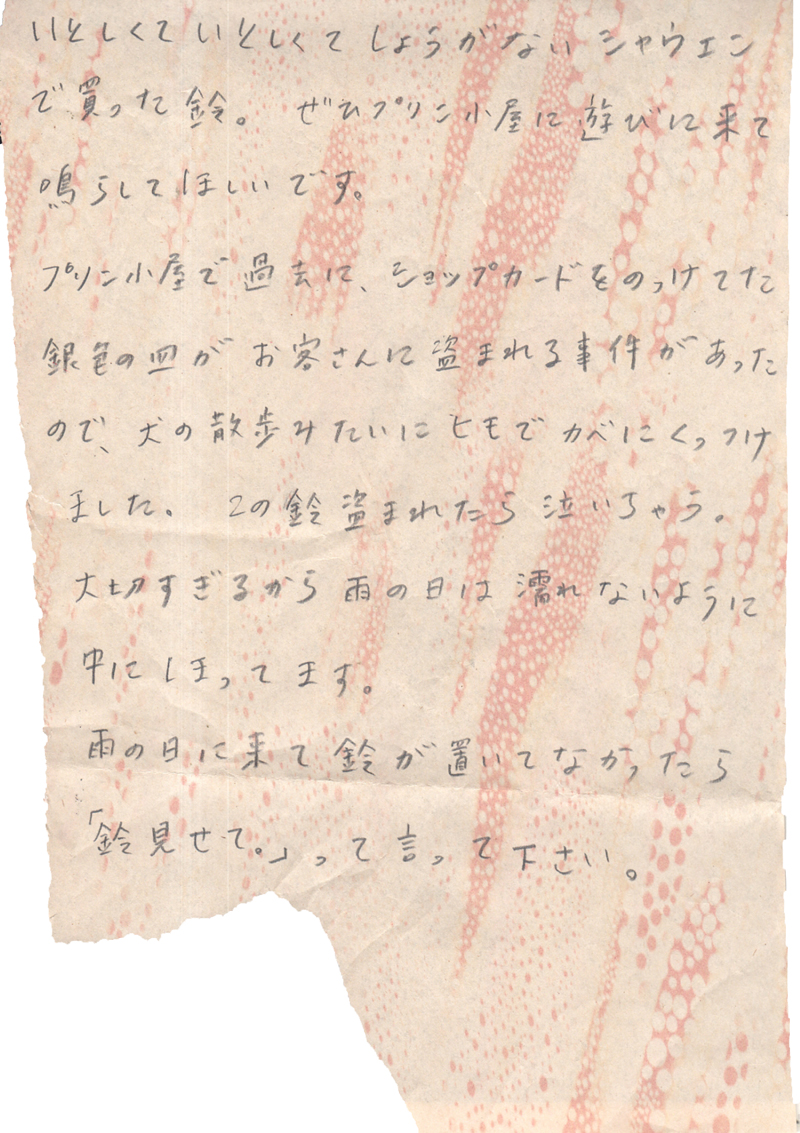 いとしくていとしくてしょうがないシャウエン
で買った鈴。 ぜひプリン小屋に遊びに来て
鳴らしてほしいです。
プリン小屋で過去に、ショップカードをのっけてた
銀色の皿がお客さんに盗まれる事件があった
ので、犬の散歩みたいにヒモでカベにくっつけ
ました。 この鈴盗まれたら泣いちゃう。
大切すぎるから雨の日は濡れないように
中にしまってます。
雨の日に来て鈴が置いてなかったら
「鈴見せて。」って言って下さい。